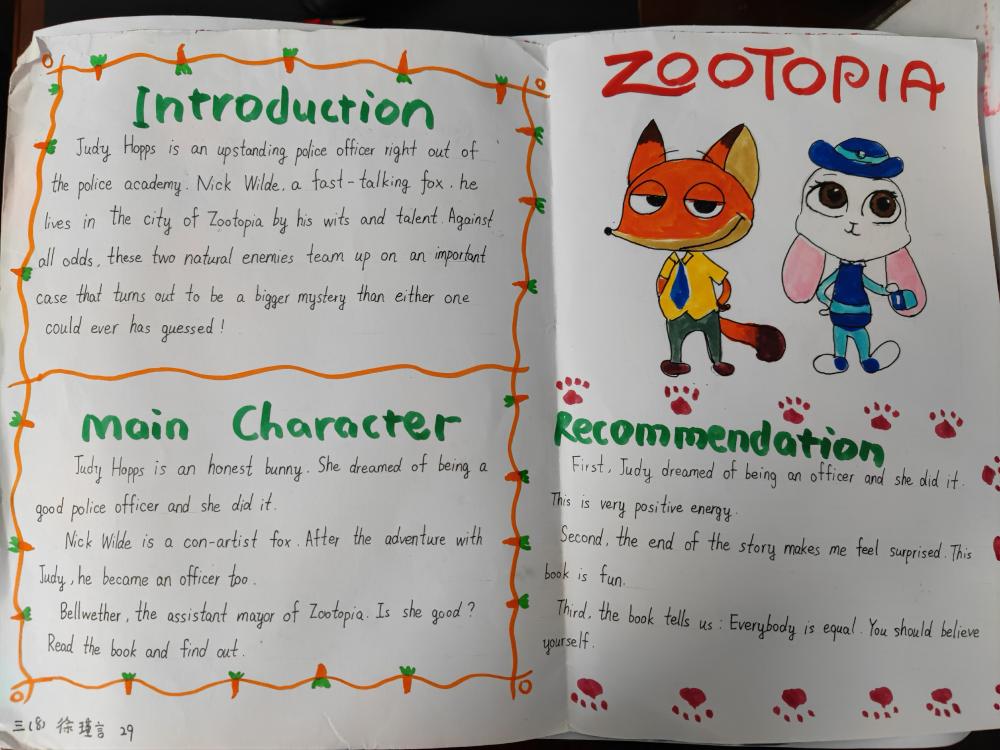 Introduction
Judy Hopps is an upstanding police officer right out of
the police academy. Nick Wilde, a fast-talking fox, he
lives in the city of Zootopia by his wits and talent. Against
all odds, these two natural enemies team up on an important
case that turns out to be a bigger mystery than either one
could ever has guessed!
main Character
Judy Hopps is an honest bunny. She dreamed of being a
good police officer and she did it.
Nick Wilde is a con-artist fox. After the adventure with
Judy, he became an officer too.
Bellwether, the assistant mayor of Zootopia. Is she good?
Read the book and find out.
三(8) 徐瑾言 29
ZOOTOPIA
Recommendation
First, Judy dreamed of being an officer and she did it.
This is very positive energy.
Second, the end of the story makes me feel surprised. This
book is fun.
Third, the book tells us: Everybody is equal. You should believe
yourself.